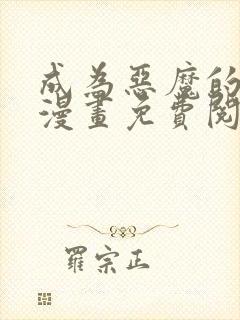 成為惡魔的
漫畫免費閱
羅宗正